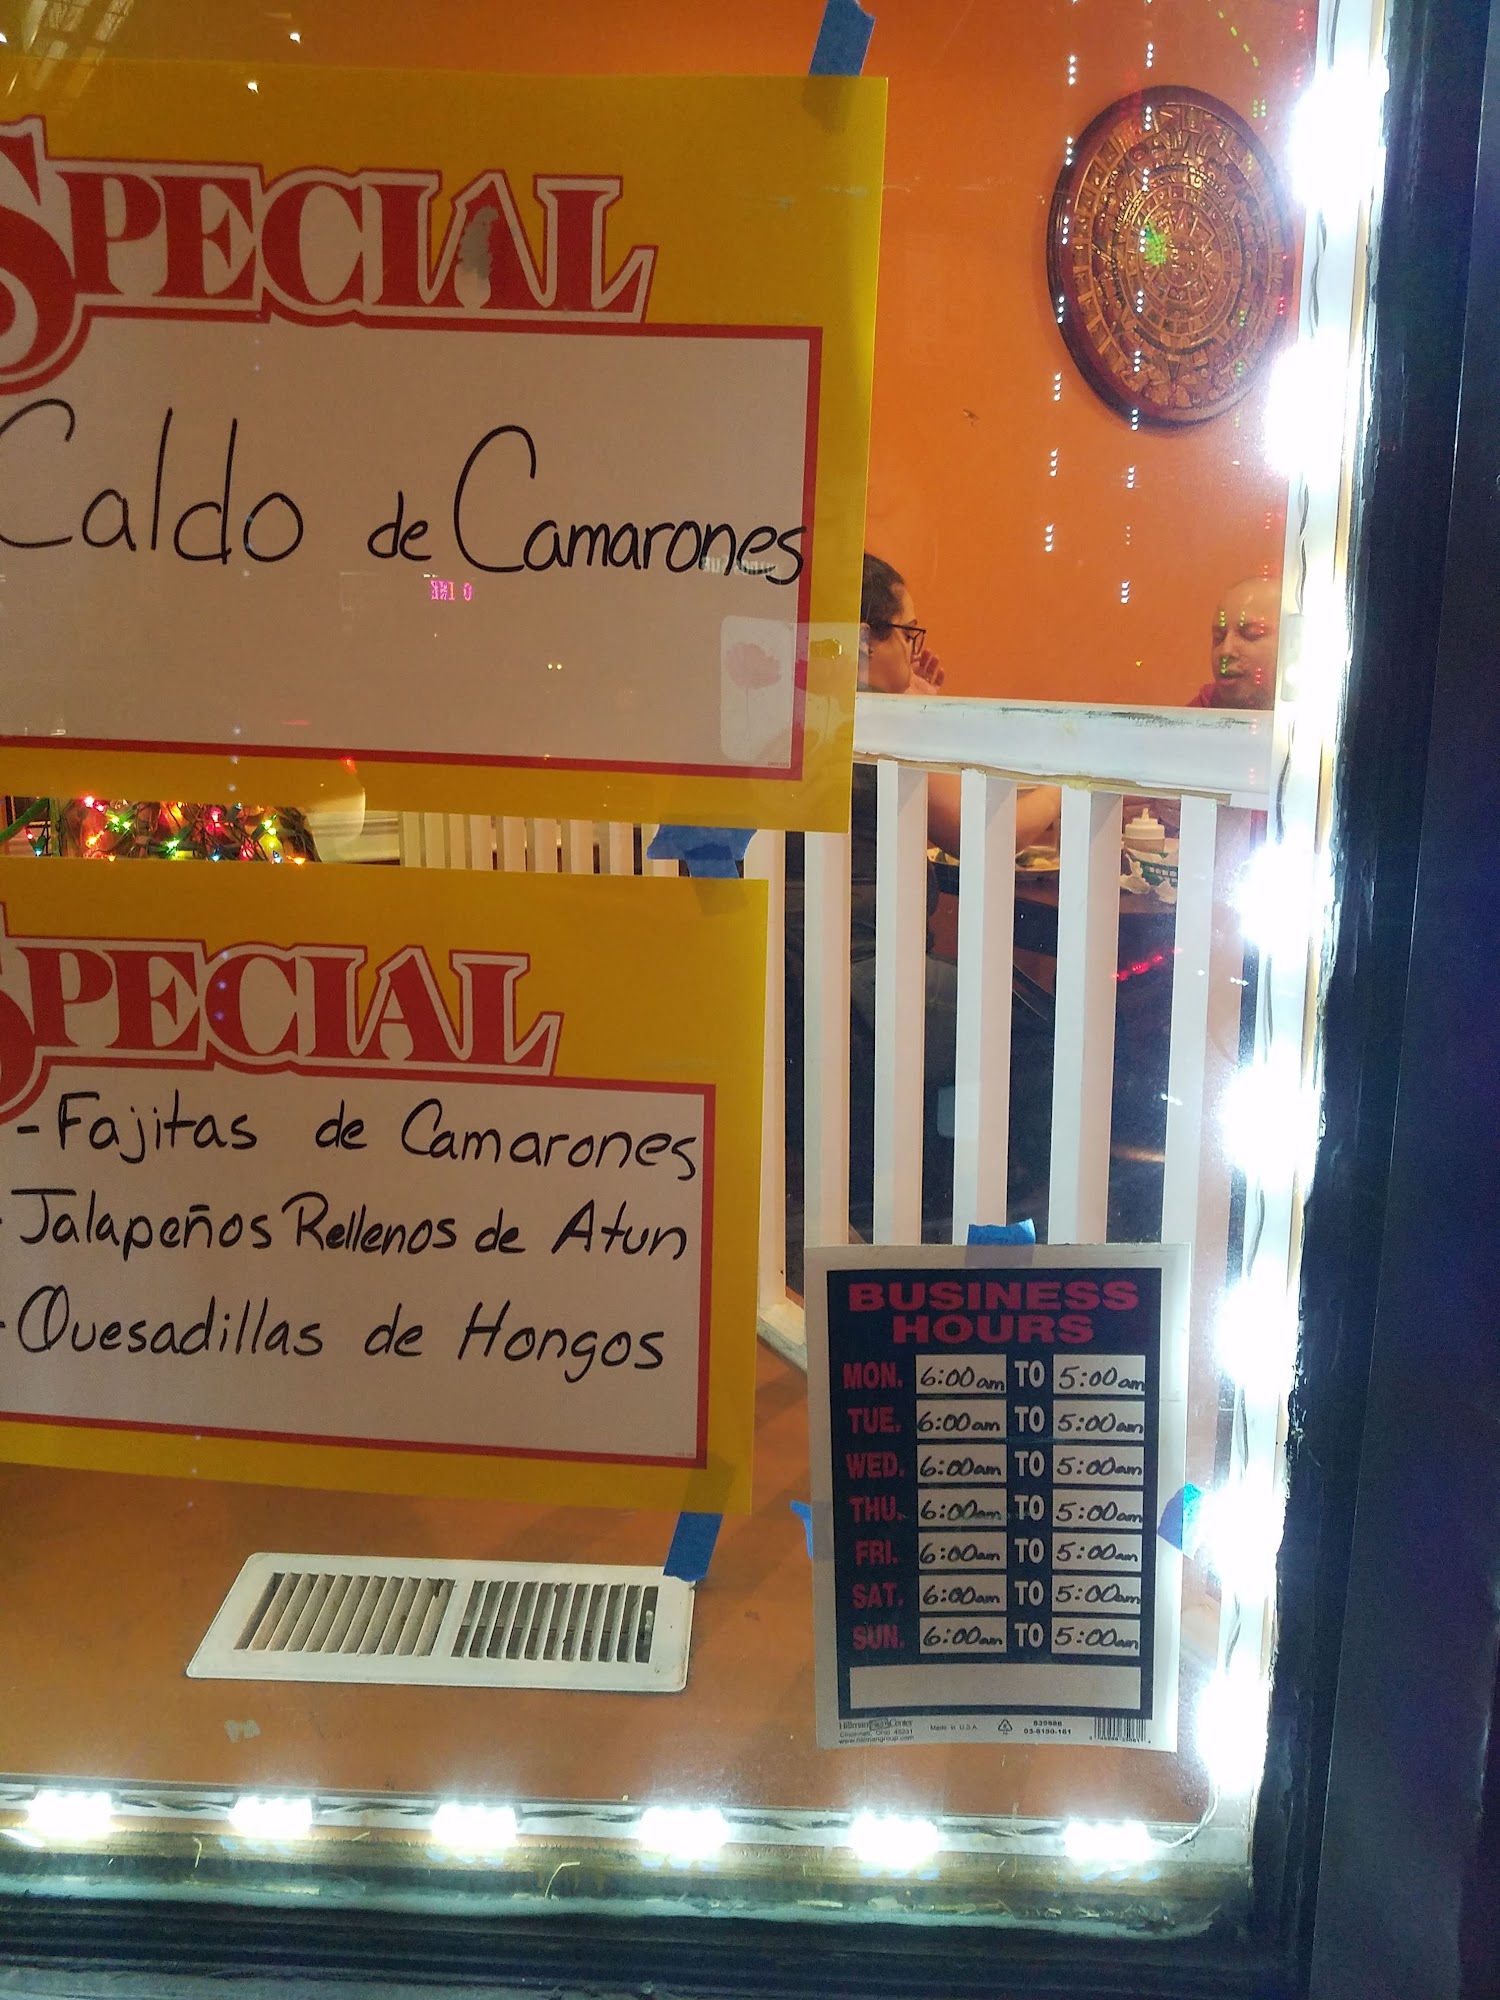 SPECIAL
Caldo de Camarones
SPECIAL
- Fajitas de Camarones
- Jalapeños Rellenos de Atun
- Quesadillas de Hongos
BUSINESS
HOURS
MON. 6:00am TO 5:00am
TUE. 6:00am TO 5:00am
WED. 6:00am TO 5:00am
THU. 6:00am TO 5:00am
FRI. 6:00am TO 5:00am
SAT. 6:00am TO 5:00am
SUN. 6:00am TO 5:00am
Hillman Center Made in U.S.A. 839888
Cincinnati, Ohio 45231
www.hillmangroup.com